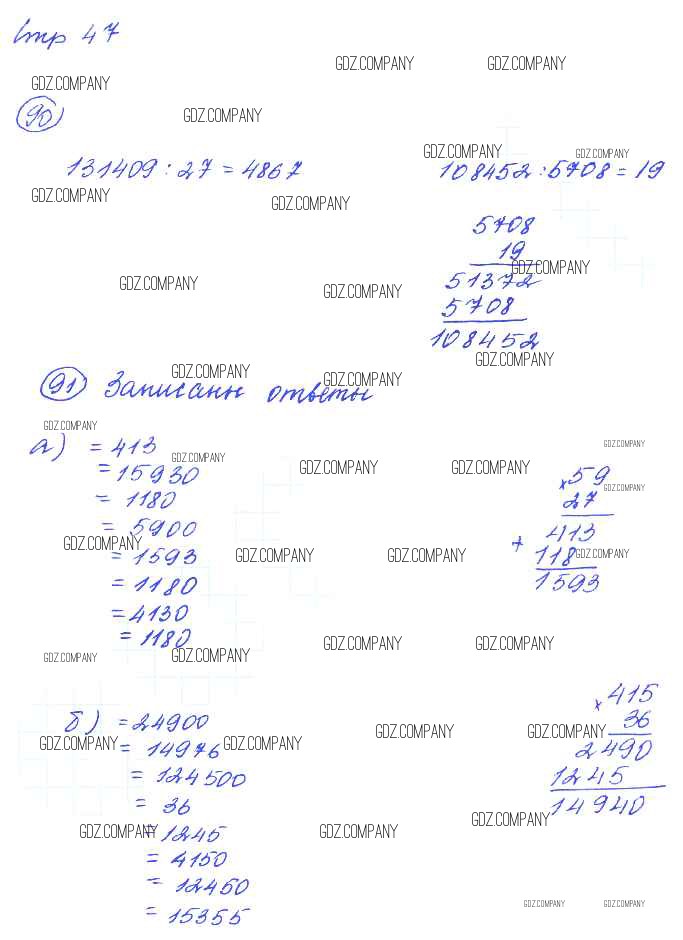 Стр 47
GDZ.COMPANY GDZ.COMPANY
GDZ.COMPANY
90
GDZ.COMPANY
GDZ.COMPANY GDZ.COMPANY
131409 : 27 = 4867
108452 : 5708 = 19
GDZ.COMPANY GDZ.COMPANY
5708
19
GDZ.COMPANY
51372
GDZ.COMPANY GDZ.COMPANY
5708
108452
GDZ.COMPANY
GDZ.COMPANY GDZ.COMPANY
91 Записаны ответы
GDZ.COMPANY
а) = 413
GDZ.COMPANY GDZ.COMPANY
= 15930
GDZ.COMPANY GDZ.COMPANY
= 1180
= 5900
GDZ.COMPANY
= 1593
GDZ.COMPANY GDZ.COMPANY
= 1180
= 4130
= 1180
× 59
GDZ.COMPANY
27
+ 413
118
GDZ.COMPANY
1593
GDZ.COMPANY GDZ.COMPANY
GDZ.COMPANY GDZ.COMPANY
б) = 24900
GDZ.COMPANY GDZ.COMPANY
= 14976
= 124500
= 36
GDZ.COMPANY
= 1245
= 4150
= 12450
= 15355
× 415
36
GDZ.COMPANY GDZ.COMPANY
2490
1245
14940
GDZ.COMPANY GDZ.COMPANY
GDZ.COMPANY GDZ.COMPANY